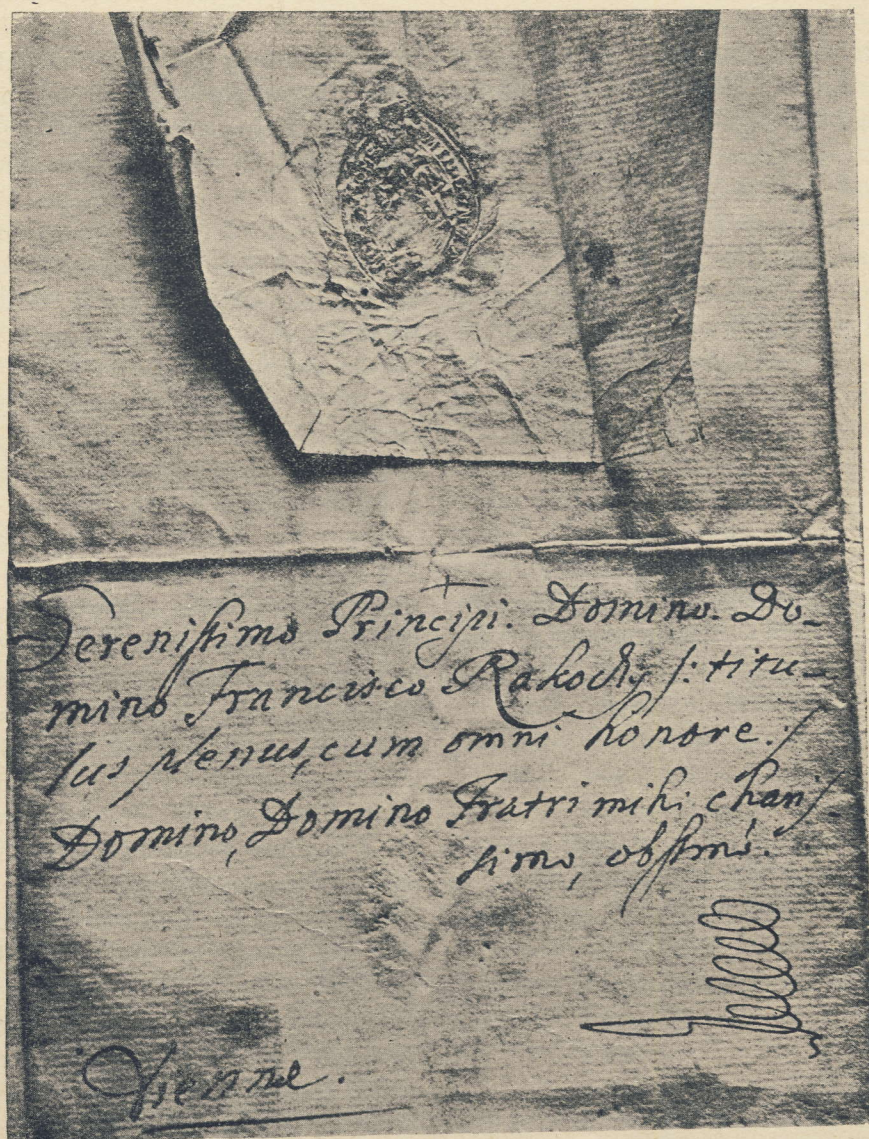 Serenissimo Principi. Domino. Do-
mino Francisco Rakoczy /: titu-
lus plenus, cum omni honore :/
Domino, Domino Fratri mihi chari
simo, obssmo.
Vienne.